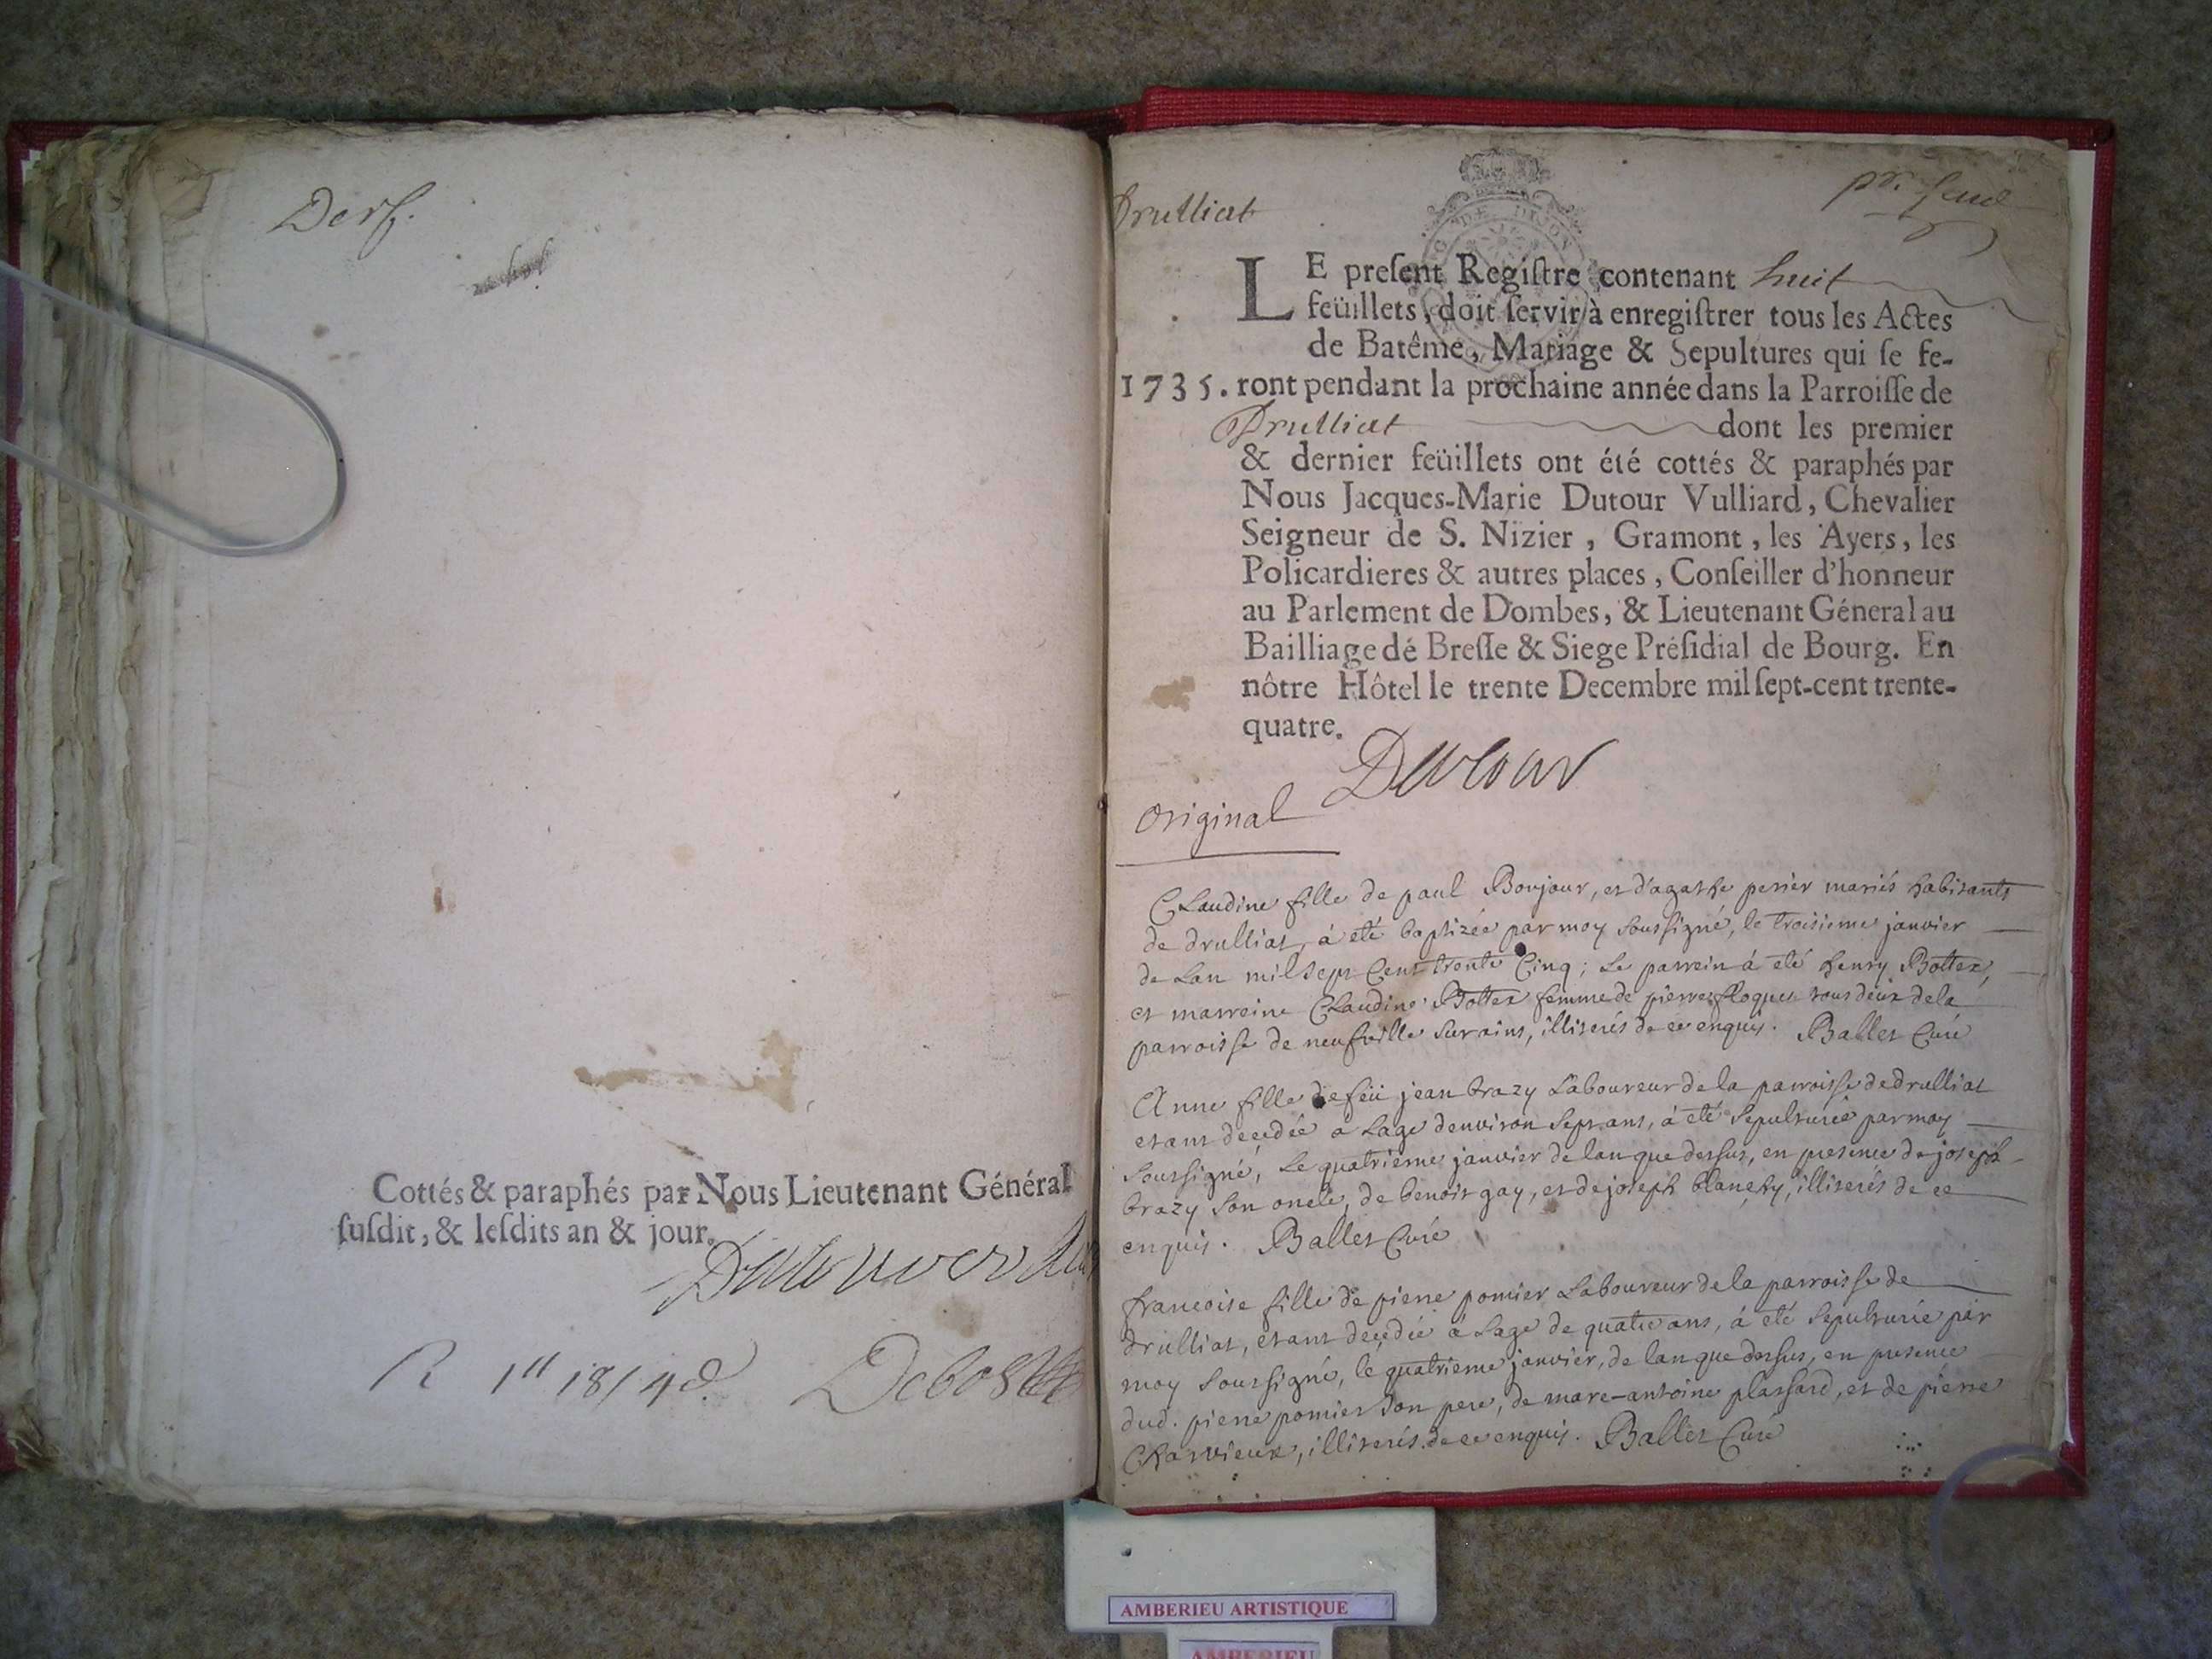 Derf.
Cottés & paraphés par Nous Lieutenant Général
ſuſdit, & leſdits an & jour.
R 1tt 18/ 4 d.
Drulliat
pr. feuil
DE DIJON
LE preſent Regiſtre contenant huit
feüillets, doit ſervir à enregiſtrer tous les Actes
de Batême, Mariage & Sepultures qui ſe fe-
1735. ront pendant la prochaine année dans la Parroiſſe de
Drulliat dont les premier
& dernier feüillets ont été cottés & paraphés par
Nous Jacques-Marie Dutour Vulliard, Chevalier
Seigneur de S. Nizier, Gramont, les Ayers, les
Policardieres & autres places, Conſeiller d'honneur
au Parlement de Dombes, & Lieutenant Géneral au
Bailliage dé Breſſe & Siege Préſidial de Bourg. En
nôtre Hôtel le trente Decembre mil ſept-cent trente-
quatre.
Dutour
Original
Claudine fille de paul Bonjour, et d'agathe perier mariés habitants
de drulliat, á eté baptizée par moy soussigné, le troisieme janvier
de Lan mil sept Cent trente Cinq; Le parrein á eté henry Bottex,
et marreine Claudine Bottex femme de pierre floquet tous deux dela
parroisse de neufville sur ains, illiterés de ce enquis. Ballet Curé
Anne fille de feü jean brazy Laboureur de la parroisse de drulliat
etant decedée a Lage denviron sept ans, á eté sepulturée par moy
soussigné, Le quatrieme janvier de lan que dessus, en presence de joseph
brazy son oncle, de benoit gay, et de joseph blanchy, illiterés de ce
enquis. Ballet Curé
francoise fille de pierre pomier Laboureur de la parroisse de
drulliat, etant decedée á Lage de quatre ans, á eté sepulturée par
moy soussigné, le quatrieme janvier, de lan que dessus, en presence
dud. pierre pomier son pere, de marc-antoine plassard, et de pierre
Charvieux, illiterés de ce enquis. Ballet Curé
AMBERIEU ARTISTIQUE
AMBERIEU